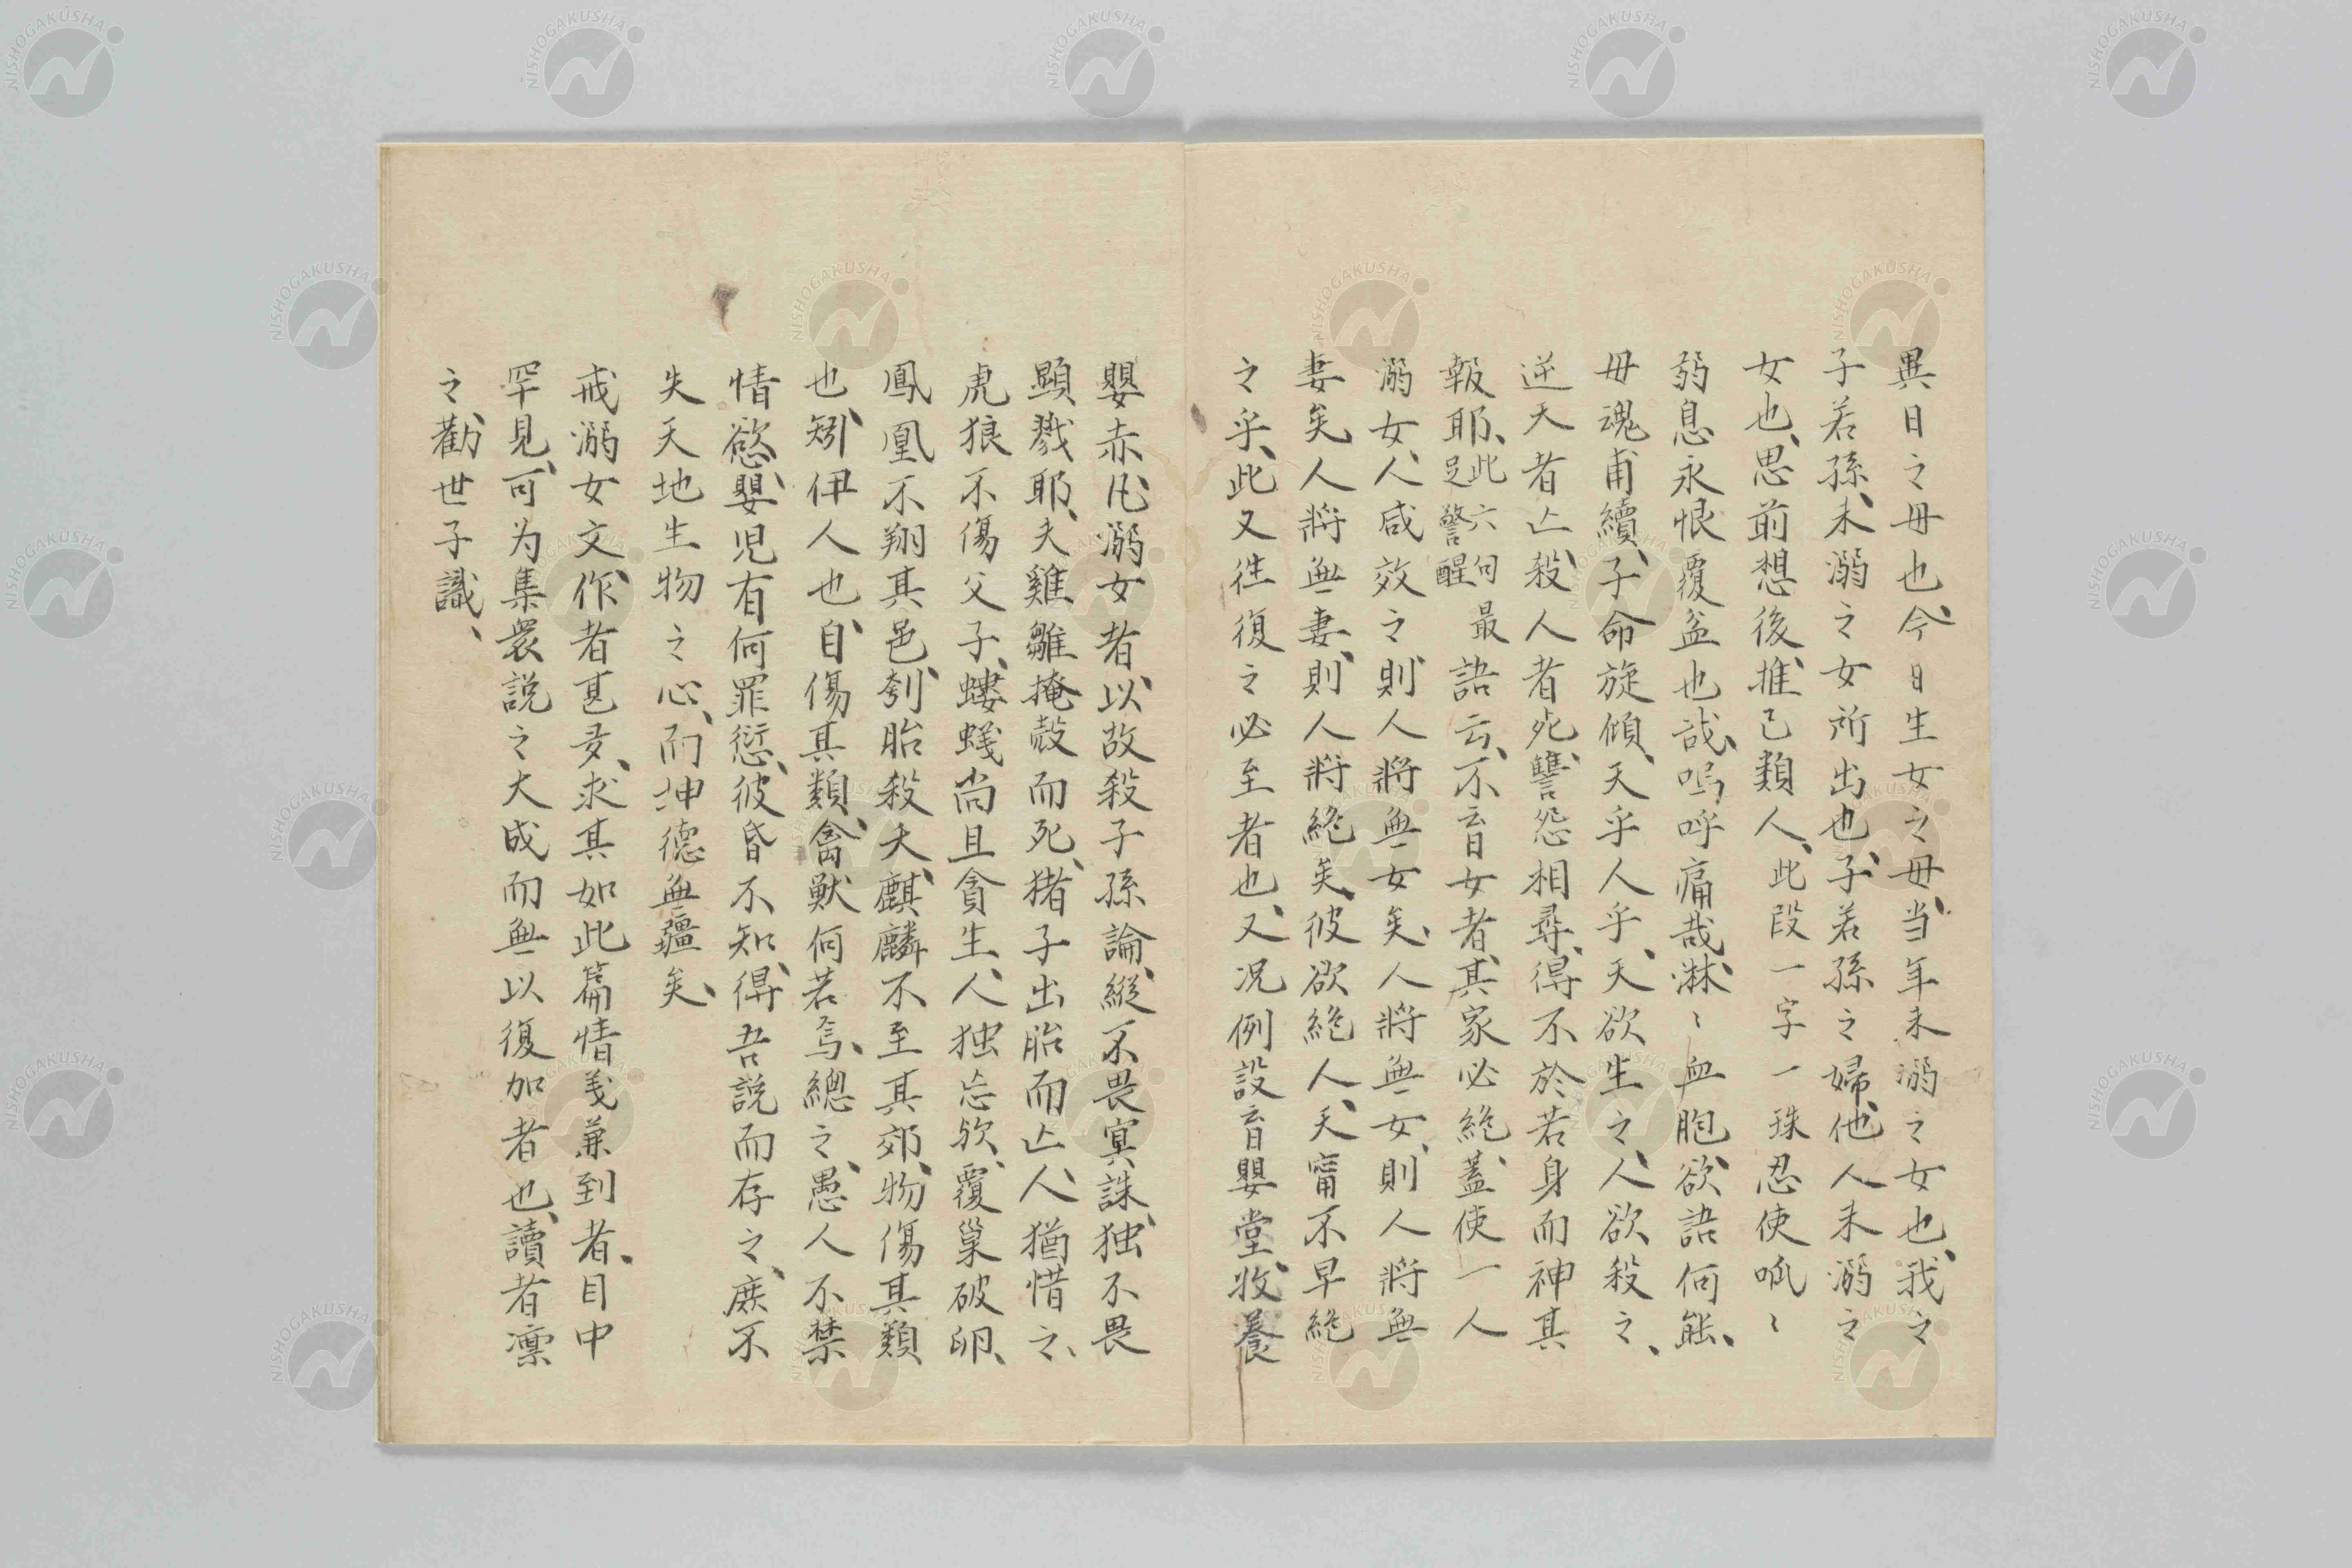 異日之母也、今日生女之母、当年未溺之女也、我之
子若孫、未溺之女所出也、子若孫之婦、他人未溺之
女也、思前想後、推己類人、此段一字一珠忍使呱〻
弱息永恨覆盆也哉、嗚呼痛哉、淋〻血胞、欲語何能、
母魂甫續、子命旋傾、天乎人乎、天欲生之、人欲殺之、
逆天者亡、殺人者死、讐怨相尋、得不於若身而神其
報耶、此六句足警醒最語云、不育女者、其家必絶、蓋使一人
溺女、人咸效之、則人將無女矣、人將無女、則人將無
妻矣、人將無妻、則人將絶矣、彼欲絶人、天寗不早絶
之乎、此又徃復之必至者也、又况例設育嬰堂、收養
嬰赤、凡溺女者、以故殺子孫論、縱不畏冥誅、独不畏
顕戮耶、夫雞雛掩殻而死、猪子出胎而亡、人猶惜之、
虎狼不傷父子、螻蟻尚且貪生、人独忘欤、覆巢破卵、
鳳凰不翔其邑、刳胎殺夭、麒麟不至其郊、物傷其類
也、矧伊人也、自傷其類、禽獣何若焉、總之、愚人不禁
情慾、嬰児有何罪愆、彼昏不知、得吾説而存之、庶不
失天地生物之心、而坤德無疆矣、
戒溺女文、作者甚多、求其如此篇情義兼到者、目中
罕見、可为集衆説之大成而無以復加者也、讀者凛
之、勸世子識、
NISHOGAKUSHA